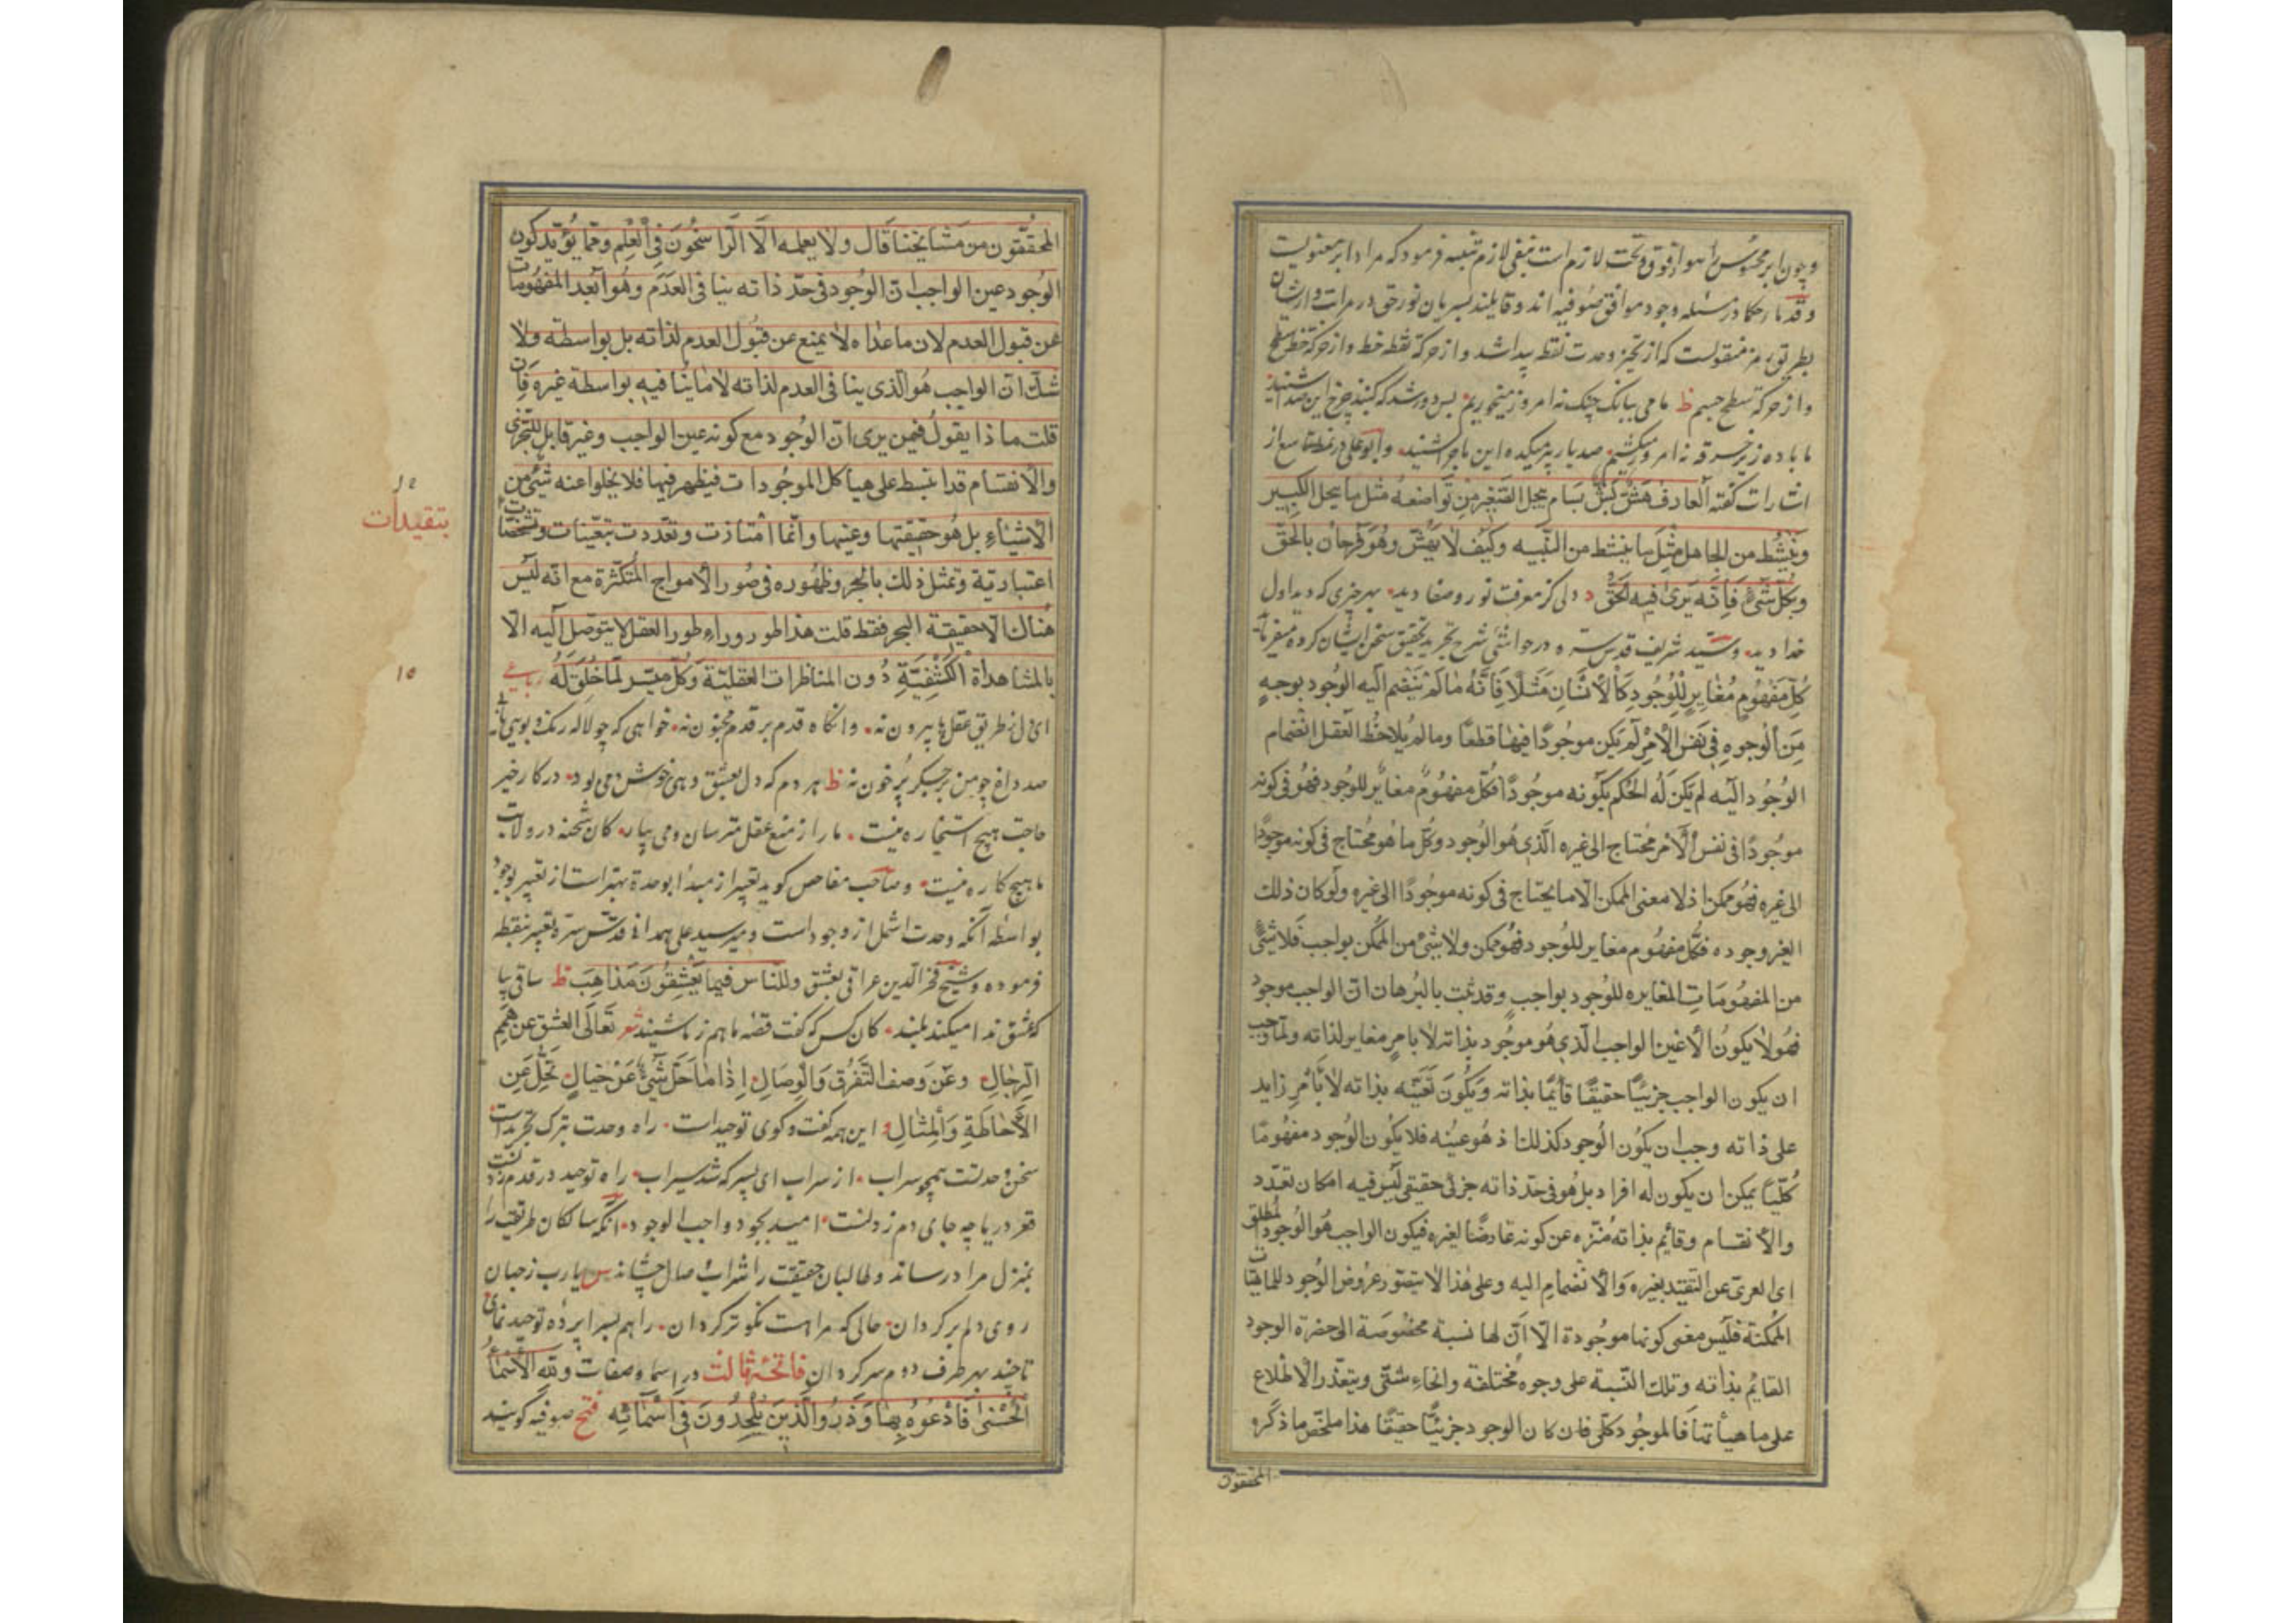 وچون ابر محسوس را هوا از فوق و تحت لازم است بنفی لازم تنبیه فرمود که مراد ابر معنویت
و قدماء حکما در مسئله وجود موافق صوفیه اند و قایلند بسریان نور حق در مراتب و از ایشان
بطریق رمز منقولست که از تحیز وحدت نقطه پیدا شد و از حرکة نقطه خط و از حرکة خط سطح
و از حرکة سطح جسم ظ ما می ببانک چنک نه امروز میخوریم بس دور شد که کنبد چرخ این صدا شنید
ما باده زیر خرقه نه امروز میکشیم صد بار پیر میکده این ماجرا شنید وابوعلی در نمط تاسع از
اشارات کفته العارف هش بش بسام یبجل الصغیر من تواضعه مثل ما یبجل الکبیر
وینبسط من الخامل مثل ما ینبسط من النبیه وکیف لا یهش وهو فرحان بالحق
وبکل شیء فانه یری فیه الحق دلی کز معرفت نور و صفا دید بهر چیزی که دید اول
خدا دید وسید شریف قدس سره در حواشی شرح تجرید تحقیق سخن ایشان کرده میفرماید
کل مفهوم مغایر للوجود کالانسان مثلا فانه ما لم ینضم الیه الوجود بوجه
من الوجوه فی نفس الامر لم یکن موجودا فیها قطعا وما لم یلاحظ العقل انضمام
الوجود الیه لم یکن له الحکم بکونه موجودا فکل مفهوم مغایر للوجود فهو فی کونه
موجودا فی نفس الامر محتاج الی غیره الذی هو الوجود وکل ما هو محتاج فی کونه موجودا
الی غیره فهو ممکن اذ لا معنی للممکن الا ما یحتاج فی کونه موجودا الی غیره ولو کان ذلک
الغیر وجوده فکل مفهوم مغایر للوجود فهو ممکن ولا شیء من الممکن بواجب فلا شیء
من المفهومات المغایره للوجود بواجب وقد ثبت بالبرهان ان الواجب موجود
فهو لا یکون الا عین الواجب الذی هو موجود بذاته لا بامر مغایر لذاته ولما وجب
ان یکون الواجب جزئیا حقیقیا قایما بذاته ویکون تعینه بذاته لا بامر زاید
علی ذاته وجب ان یکون الوجود کذلک اذ هو عینه فلا یکون الوجود مفهوما
کلیا یمکن ان یکون له افراد بل هو فی حد ذاته جزئی حقیقی لیس فیه امکان تعدد
والانقسام وقایم بذاته منزه عن کونه عارضا لغیره فیکون الواجب هو الوجود المطلق
ای العری عن التقید بغیره والانضمام الیه وعلی هذا لا یتصور عروض الوجود للماهیات
الممکنة فلیس معنی کونها موجودة الا ان لها نسبة مخصوصة الی حضرة الوجود
القایم بذاته وتلک النسبة علی وجوه مختلفة وانحاء شتی ویتعذر الاطلاع
علی ماهیاتها فالموجود کلی فان کان الوجود جزئیا حقیقیا هذا ملخص ما ذکره
المحققون
المحققون من مشایخنا قال ولا یعلمه الا الراسخون فی العلم ومما یؤید کون
الوجود عین الواجب ان الوجود فی حد ذاته ینافی العدم وهو ابعد المفهومات
عن قبول العدم لان ما عداه لا یمنع عن قبول العدم لذاته بل بواسطته ولا
شک ان الواجب هو الذی ینافی العدم لذاته لا ما ینافیه بواسطة غیره فان
قلت ما ذا یقول فیمن یری ان الوجود مع کونه عین الواجب وغیر قابل للتجزی
والانقسام قد انبسط علی هیاکل الموجودات فیظهر فیها فلا یخلوا عنه شیء من
الاشیاء بل هو حقیقتها وعینها وانما امتازت وتعددت بتعینات وتشخصات
بتقیدات
اعتباریة وتمثل ذلک بالبحر وظهوره فی صور الامواج المتکثرة مع انه لیس
هناک الا حقیقة البحر فقط قلت هذا طور وراء طور العقل لا یتوصل الیه الا
بالمشاهدة الکشفیة دون المناظرات العقلیة وکل میسر لما خلق له رباعی
١٥
ای دل ز طریق عقل پا بیرون نه وانکاه قدم بر قدم مجنون نه خواهی که چو لاله رنک و بویی یابی
صد داغ چو من بر جکر پر خون نه ظ هر دم که دل بعشق دهی خوش دمی بود در کار خیر
حاجت هیچ استخاره نیست ما را ز منع عقل مترسان و می بیار کان شحنه در ولایت
ما هیچ کاره نیست وصاحب مفاحص کوید تعبیر از مبدأ بوحدة بهتر است از تعبیر بوجود
بواسطه آنکه وحدت اشمل از وجود است ومیر سید علی همدانی قدس سره تعبیر بنقطه
فرموده وشیخ فخر الدین عراقی بعشق وللناس فیما یعشقون مذاهب ظ ساقی بیا
که عشق ندا میکند بلند کان کس که کفت قصه ما هم ز ما شنید شعر تعالی العشق عن همم
الرجال وعن وصف التفرق والوصال اذا ما جل شیء عن خیال تجل عن
الاحاطة والمثال این همه کفت و کوی توحید است راه وحدت بترک تجرید است
سخن وحدتست همچو سراب از سراب ای پسر که شد سیراب راه توحید در قدم زدنست
قعر دریا چه جای دم زدنست امید بجود واجب الوجود آنکه سالکان طریقت را
بمنزل مراد رساند وطالبان حقیقت را شراب وصال چشاند یارب ز جهان
روی دلم بر کردان حالی که مراست نکوتر کردان راهم بسرا پرده توحید نمای
تا چند بهر طرف دوم سرکردان فاتحه ثالث در اسما و صفات ولله الاسماء
الحسنی فادعوه بها وذروا الذین یلحدون فی اسمائه فتح صوفیه کویند